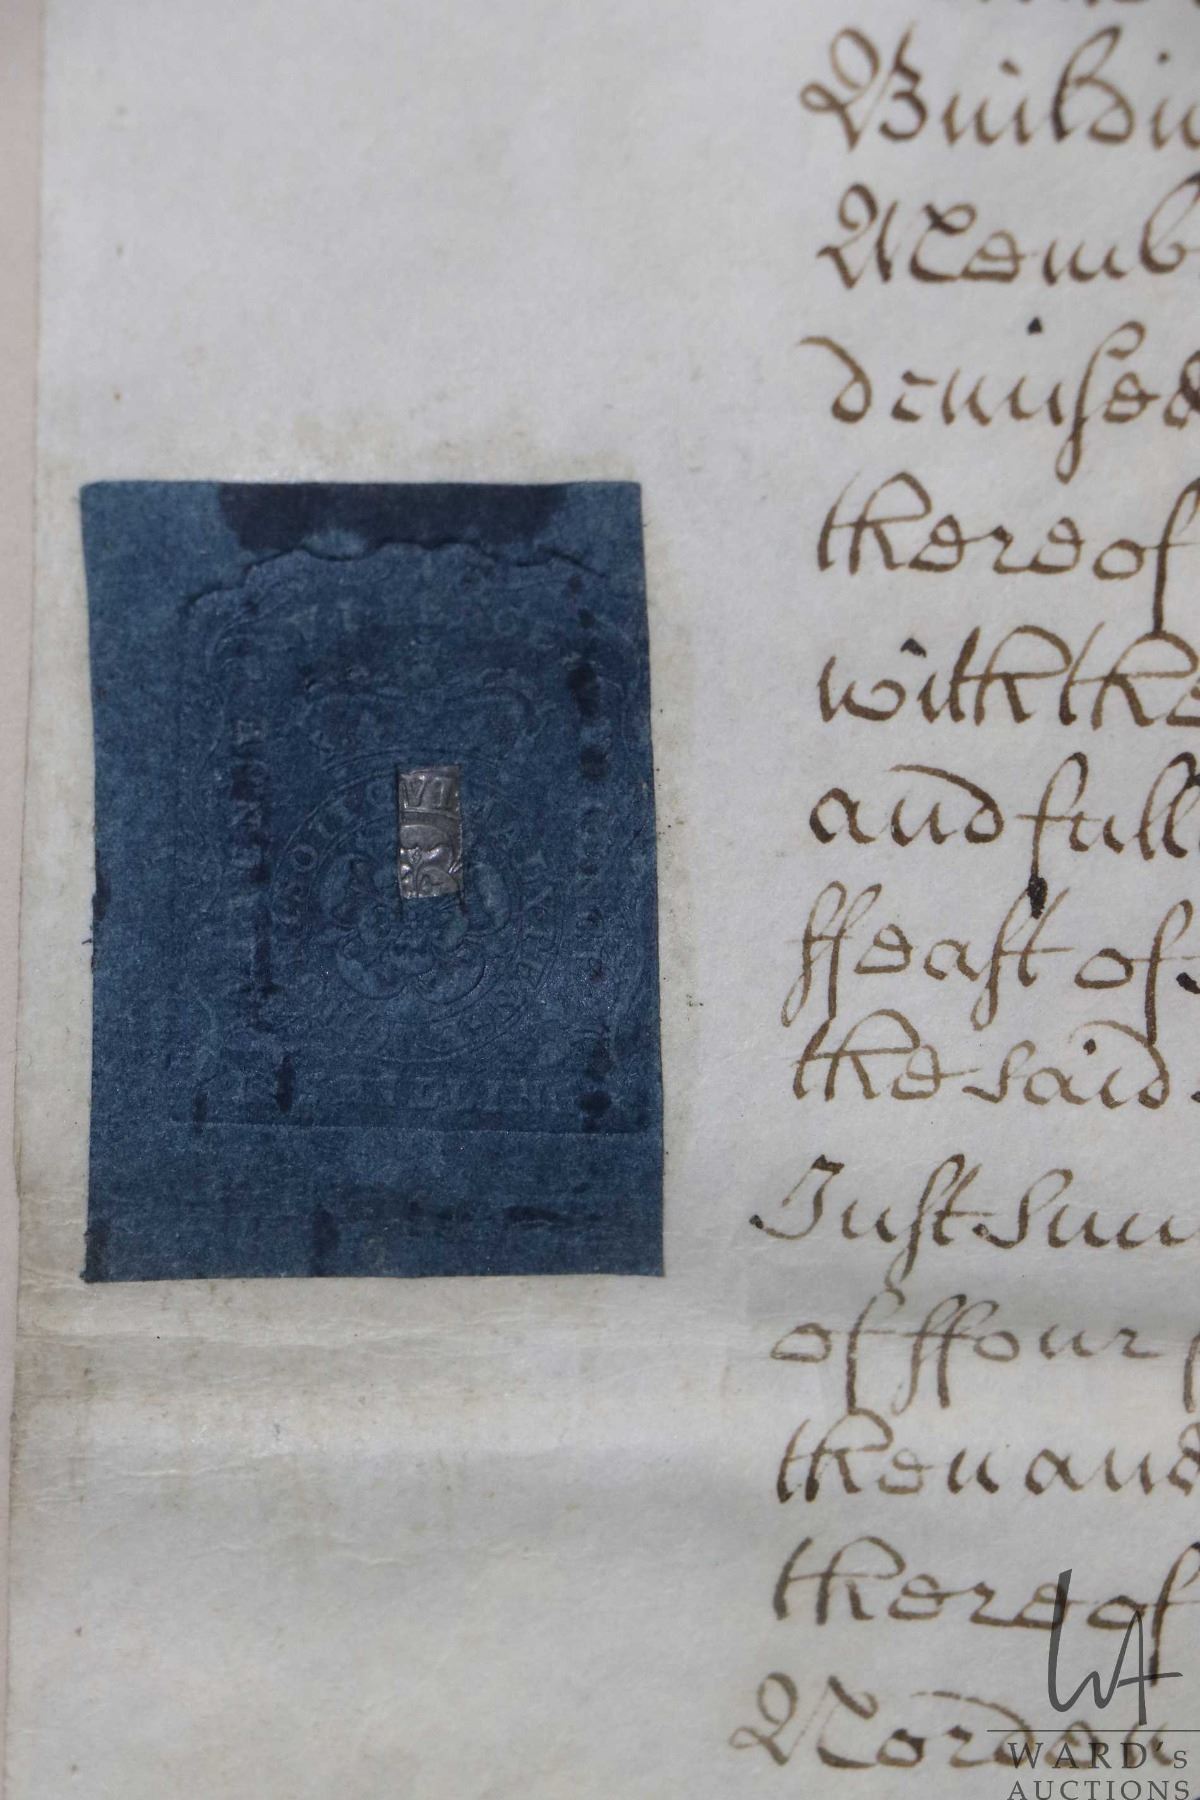 Buildin
Memb
demised
thereof
with the
and full
ffeast of
the said
Just sum
of ffour
then and
thereof
Norden
WARD'S
AUCTIONS